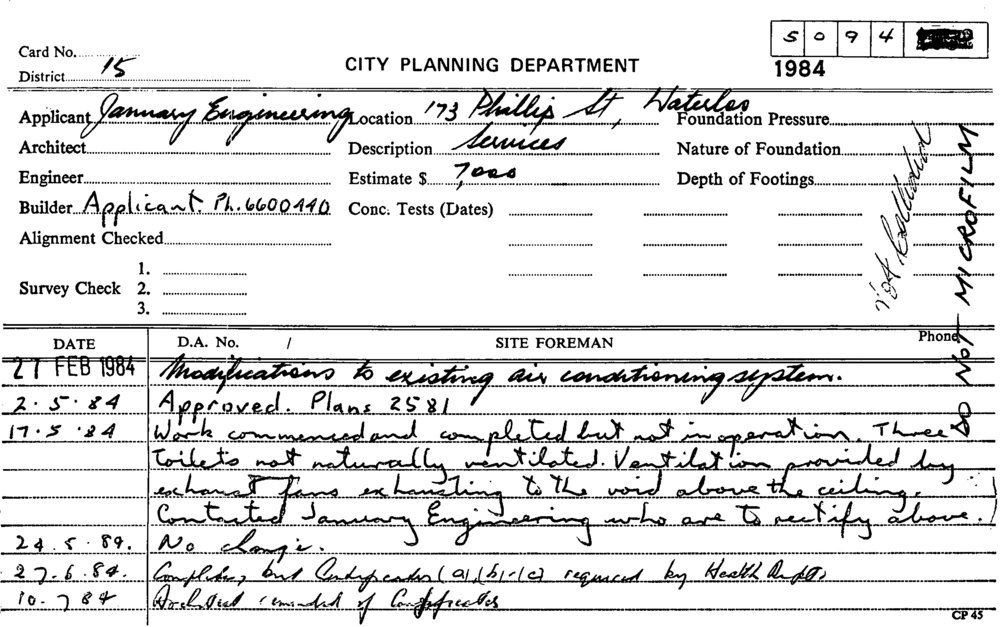 5094
Card No.
District 15
CITY PLANNING DEPARTMENT
1984
Applicant January Engineering Location 173 Phillip St, Waterloo Foundation Pressure
Architect Description Services Nature of Foundation
Engineer Estimate $ 7,000 Depth of Footings
Builder Applicant. Ph. 6600440 Conc. Tests (Dates)
Alignment Checked
1.
Survey Check 2.
3.
DO NOT MICROFILM
DATE D.A. No. / SITE FOREMAN Phone
27 FEB 1984 Modifications to existing air conditioning system.
2.5.84 Approved. Plans 2581
17.5.84 Work commenced and completed but not in operation. Three
toilets not naturally ventilated. Ventilation provided by
exhaust fans exhausting to the void above the ceiling.
Contacted January Engineering who are to rectify above.
24.5.84. No change.
27.6.84. Complete, but Certificates (a), (b), (c) required by Health Dept.
10.7.84 Architect reminded of Certificates
CP 45